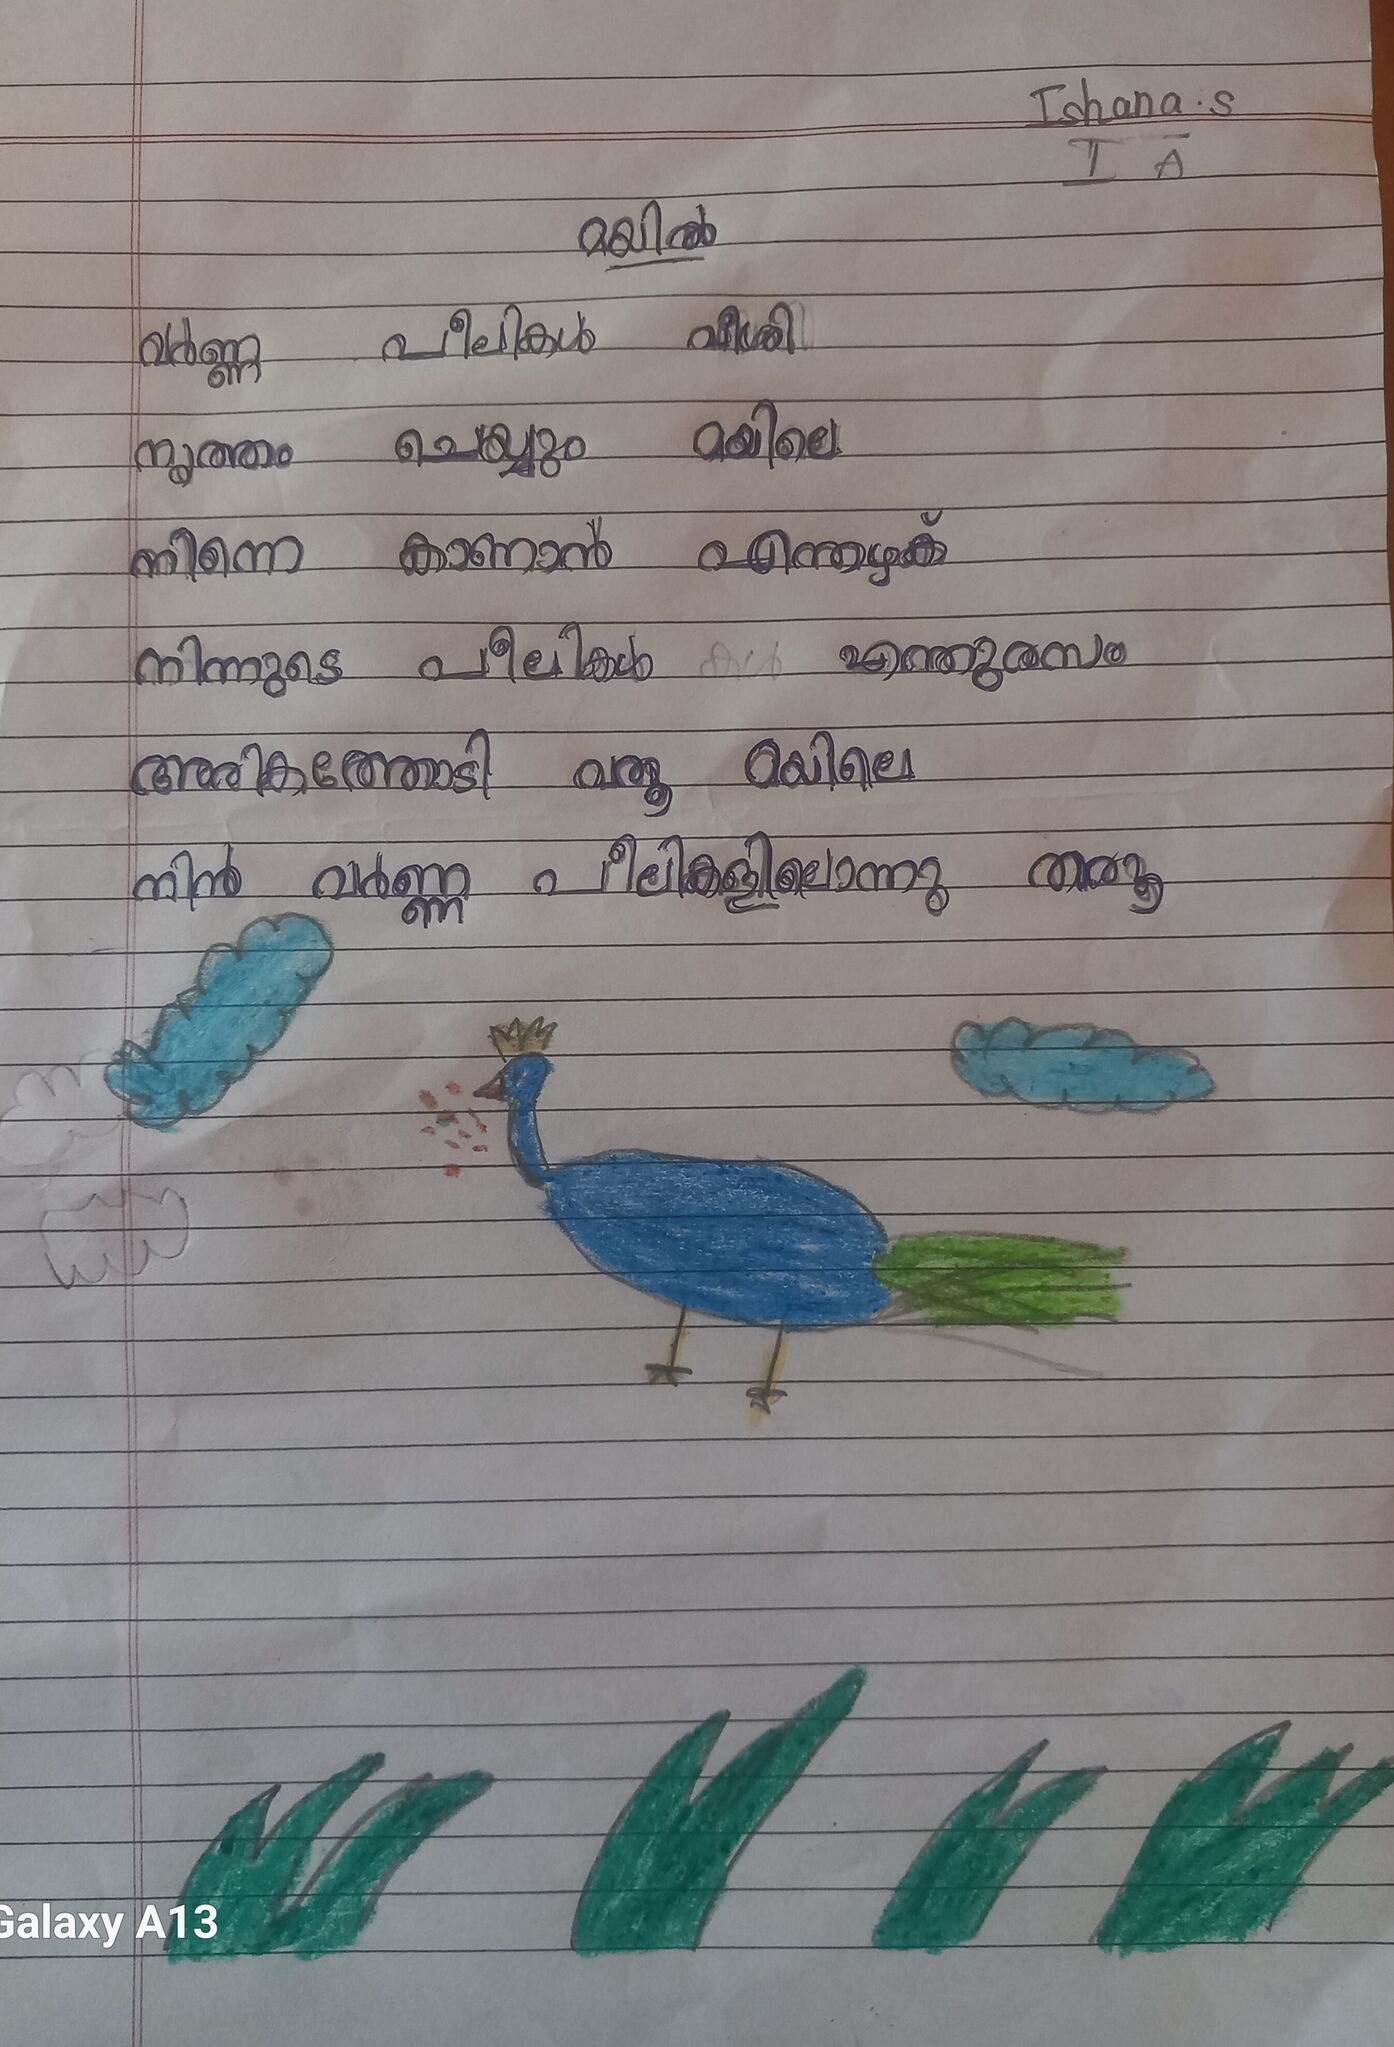 Ishana.s
I A
മയിൽ
വർണ്ണ പീലികൾ വീശി
നൃത്തം ചെയ്യും മയിലെ
നിന്നെ കാണാൻ എന്തഴക്
നിന്നുടെ പീലികൾ കൾ എന്തുരസം
അരികത്തോടി വരൂ മയിലെ
നിൻ വർണ്ണ പീലികളിലൊന്നു തരൂ
Galaxy A13